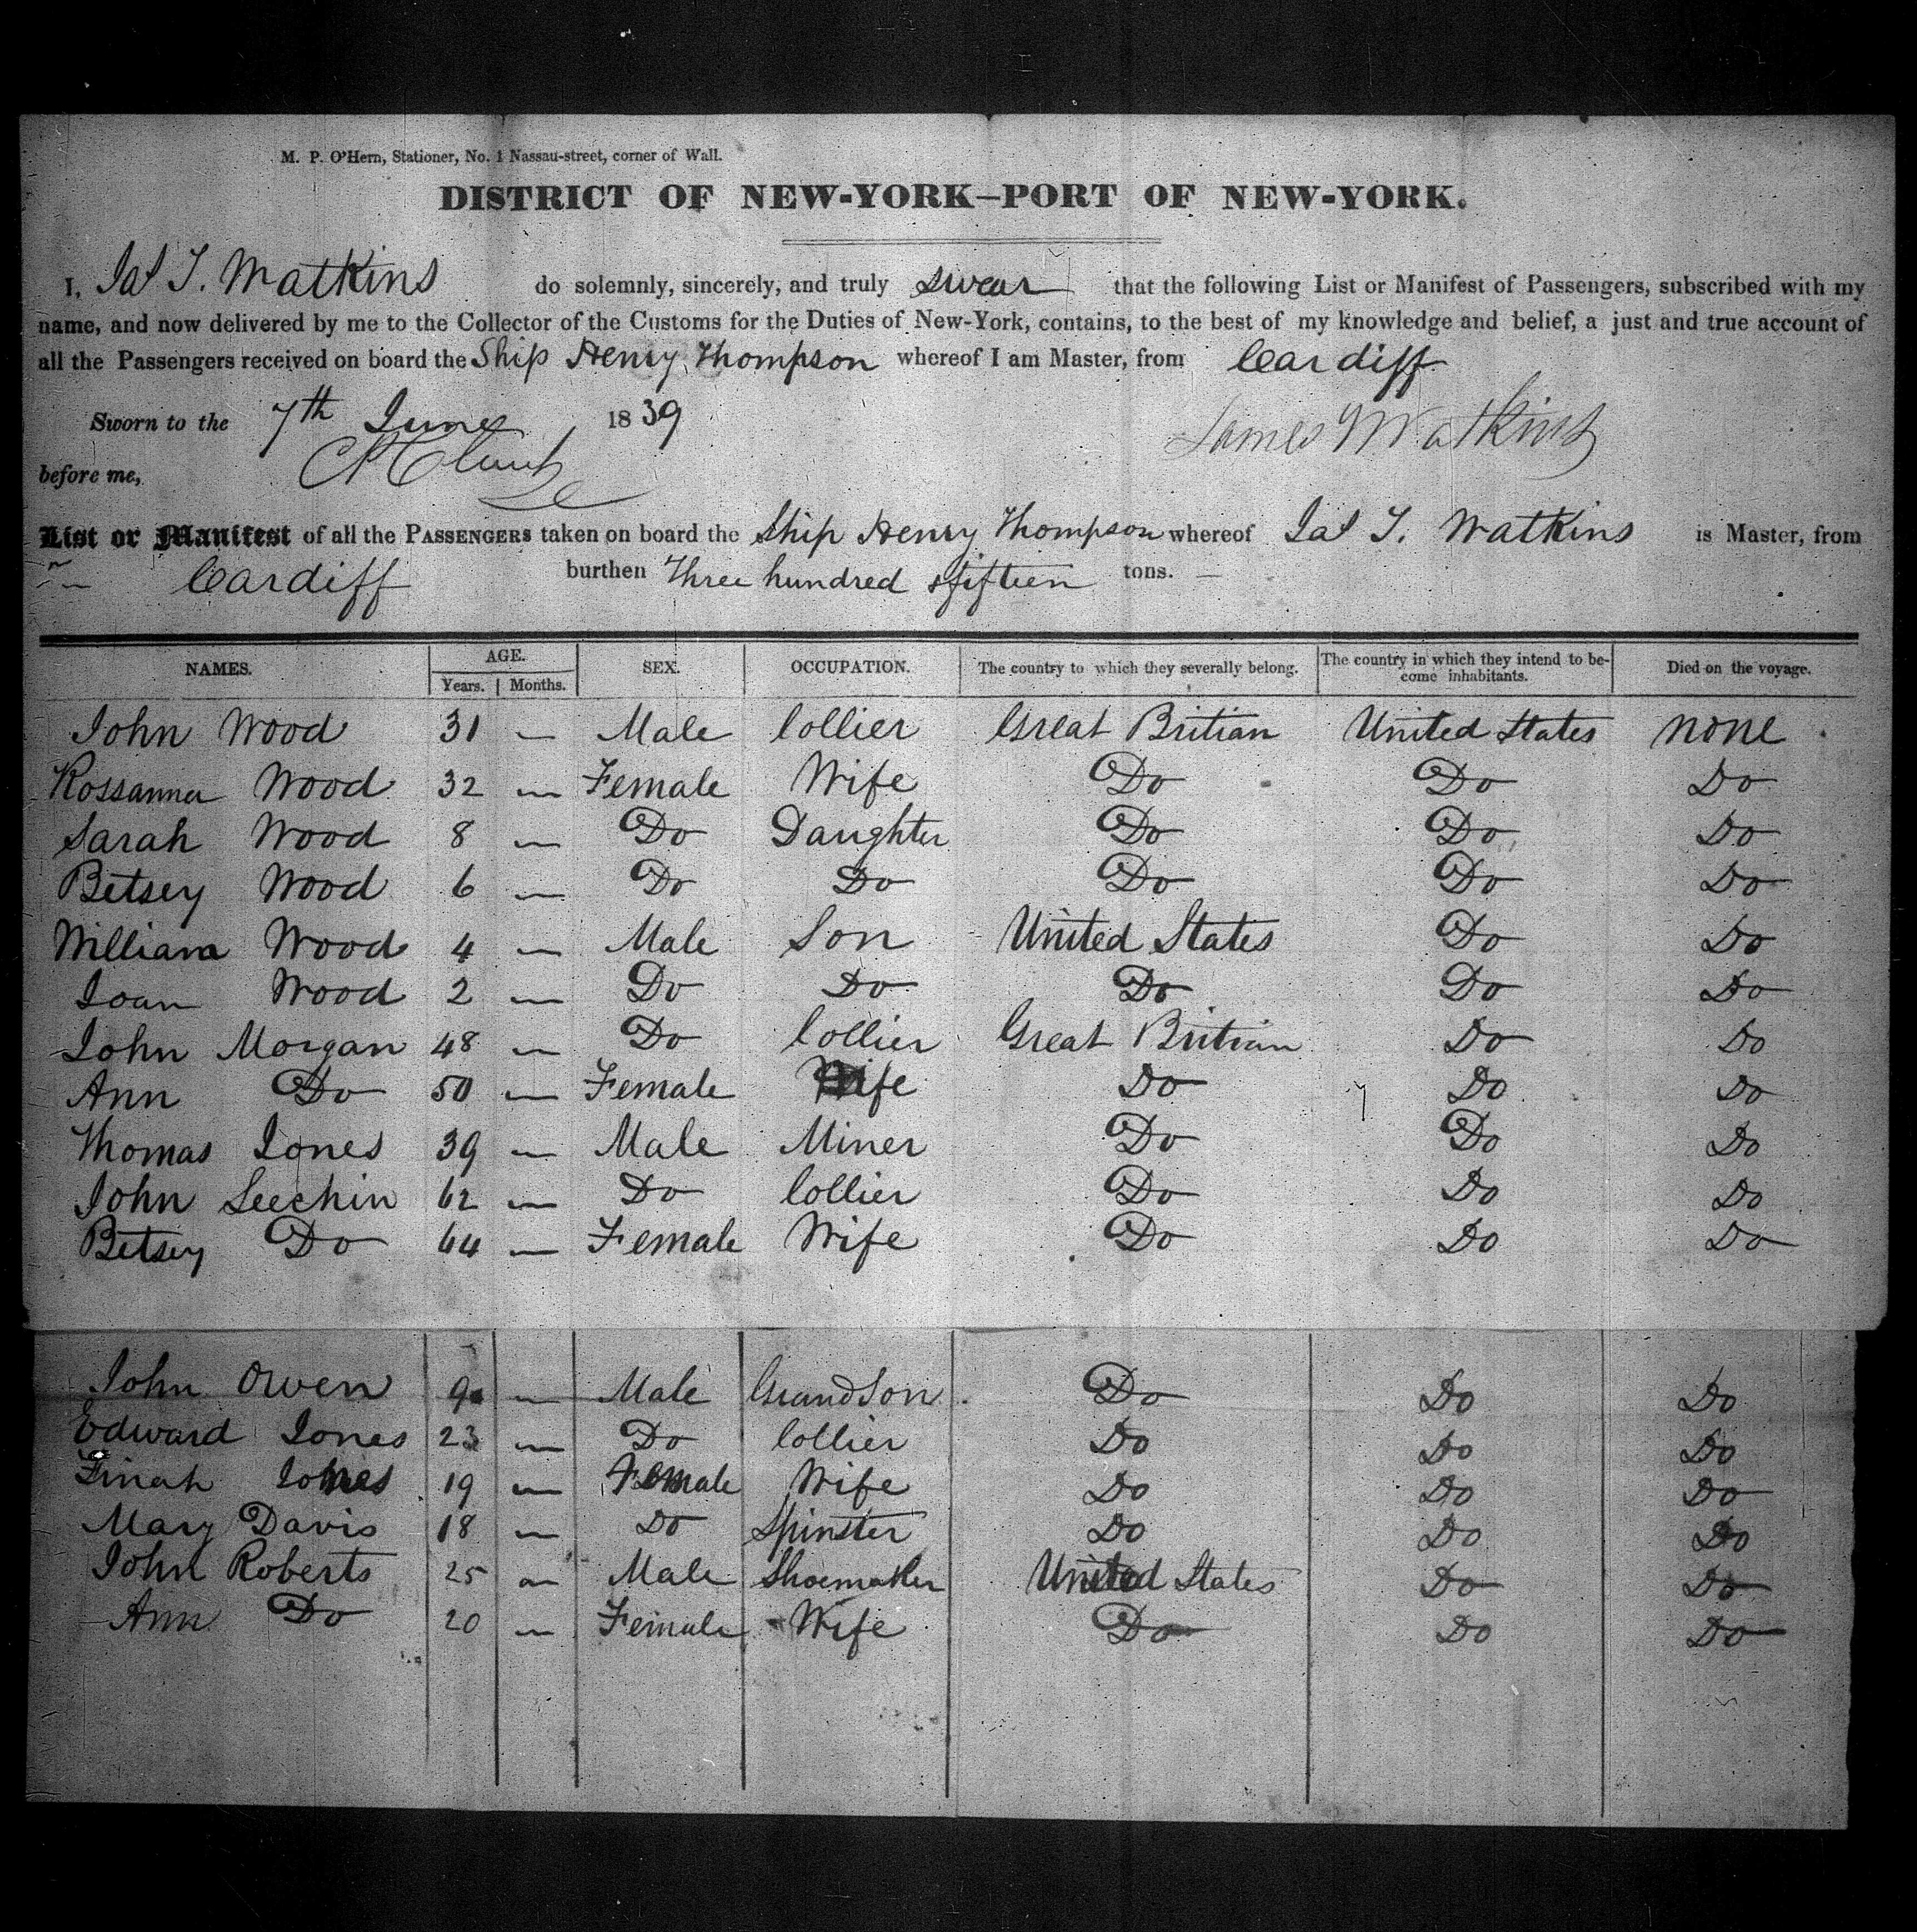 M. P. O'Hern, Stationer, No. 1 Nassau-street, corner of Wall.
DISTRICT OF NEW-YORK—PORT OF NEW-YORK.
I, Jas T. Watkins do solemnly, sincerely, and truly swear that the following List or Manifest of Passengers, subscribed with my
name, and now delivered by me to the Collector of the Customs for the Duties of New-York, contains, to the best of my knowledge and belief, a just and true account of
all the Passengers received on board the Ship Henry Thompson whereof I am Master, from Cardiff
Sworn to the 7th June 1839 James Watkins
before me,
List or Manifest of all the PASSENGERS taken on board the Ship Henry Thompson whereof Jas T. Watkins is Master, from
Cardiff burthen Three hundred & fifteen tons. —
NAMES. AGE. Years. Months. SEX. OCCUPATION. The country to which they severally belong. The country in which they intend to become inhabitants. Died on the voyage.
John Wood 31 — Male Collier Great Britian United States none
Rossanna Wood 32 — Female Wife Do Do Do
Sarah Wood 8 — Do Daughter Do Do Do
Betsey Wood 6 — Do Do Do Do Do
William Wood 4 — Male Son United States Do Do
Joan Wood 2 — Do Do Do Do Do
John Morgan 48 — Do Collier Great Britian Do Do
Ann Do 50 — Female Wife Do Do Do
Thomas Jones 39 — Male Miner Do Do Do
John Leechin 62 — Do Collier Do Do Do
Betsey Do 64 — Female Wife Do Do Do
John Owen 9 — Male GrandSon Do Do Do
Edward Jones 23 — Do Collier Do Do Do
Finah Jones 19 — Female Wife Do Do Do
Mary Davis 18 — Do Spinster Do Do Do
John Roberts 25 — Male Shoemaker United States Do Do
Ann Do 20 — Female Wife Do Do Do